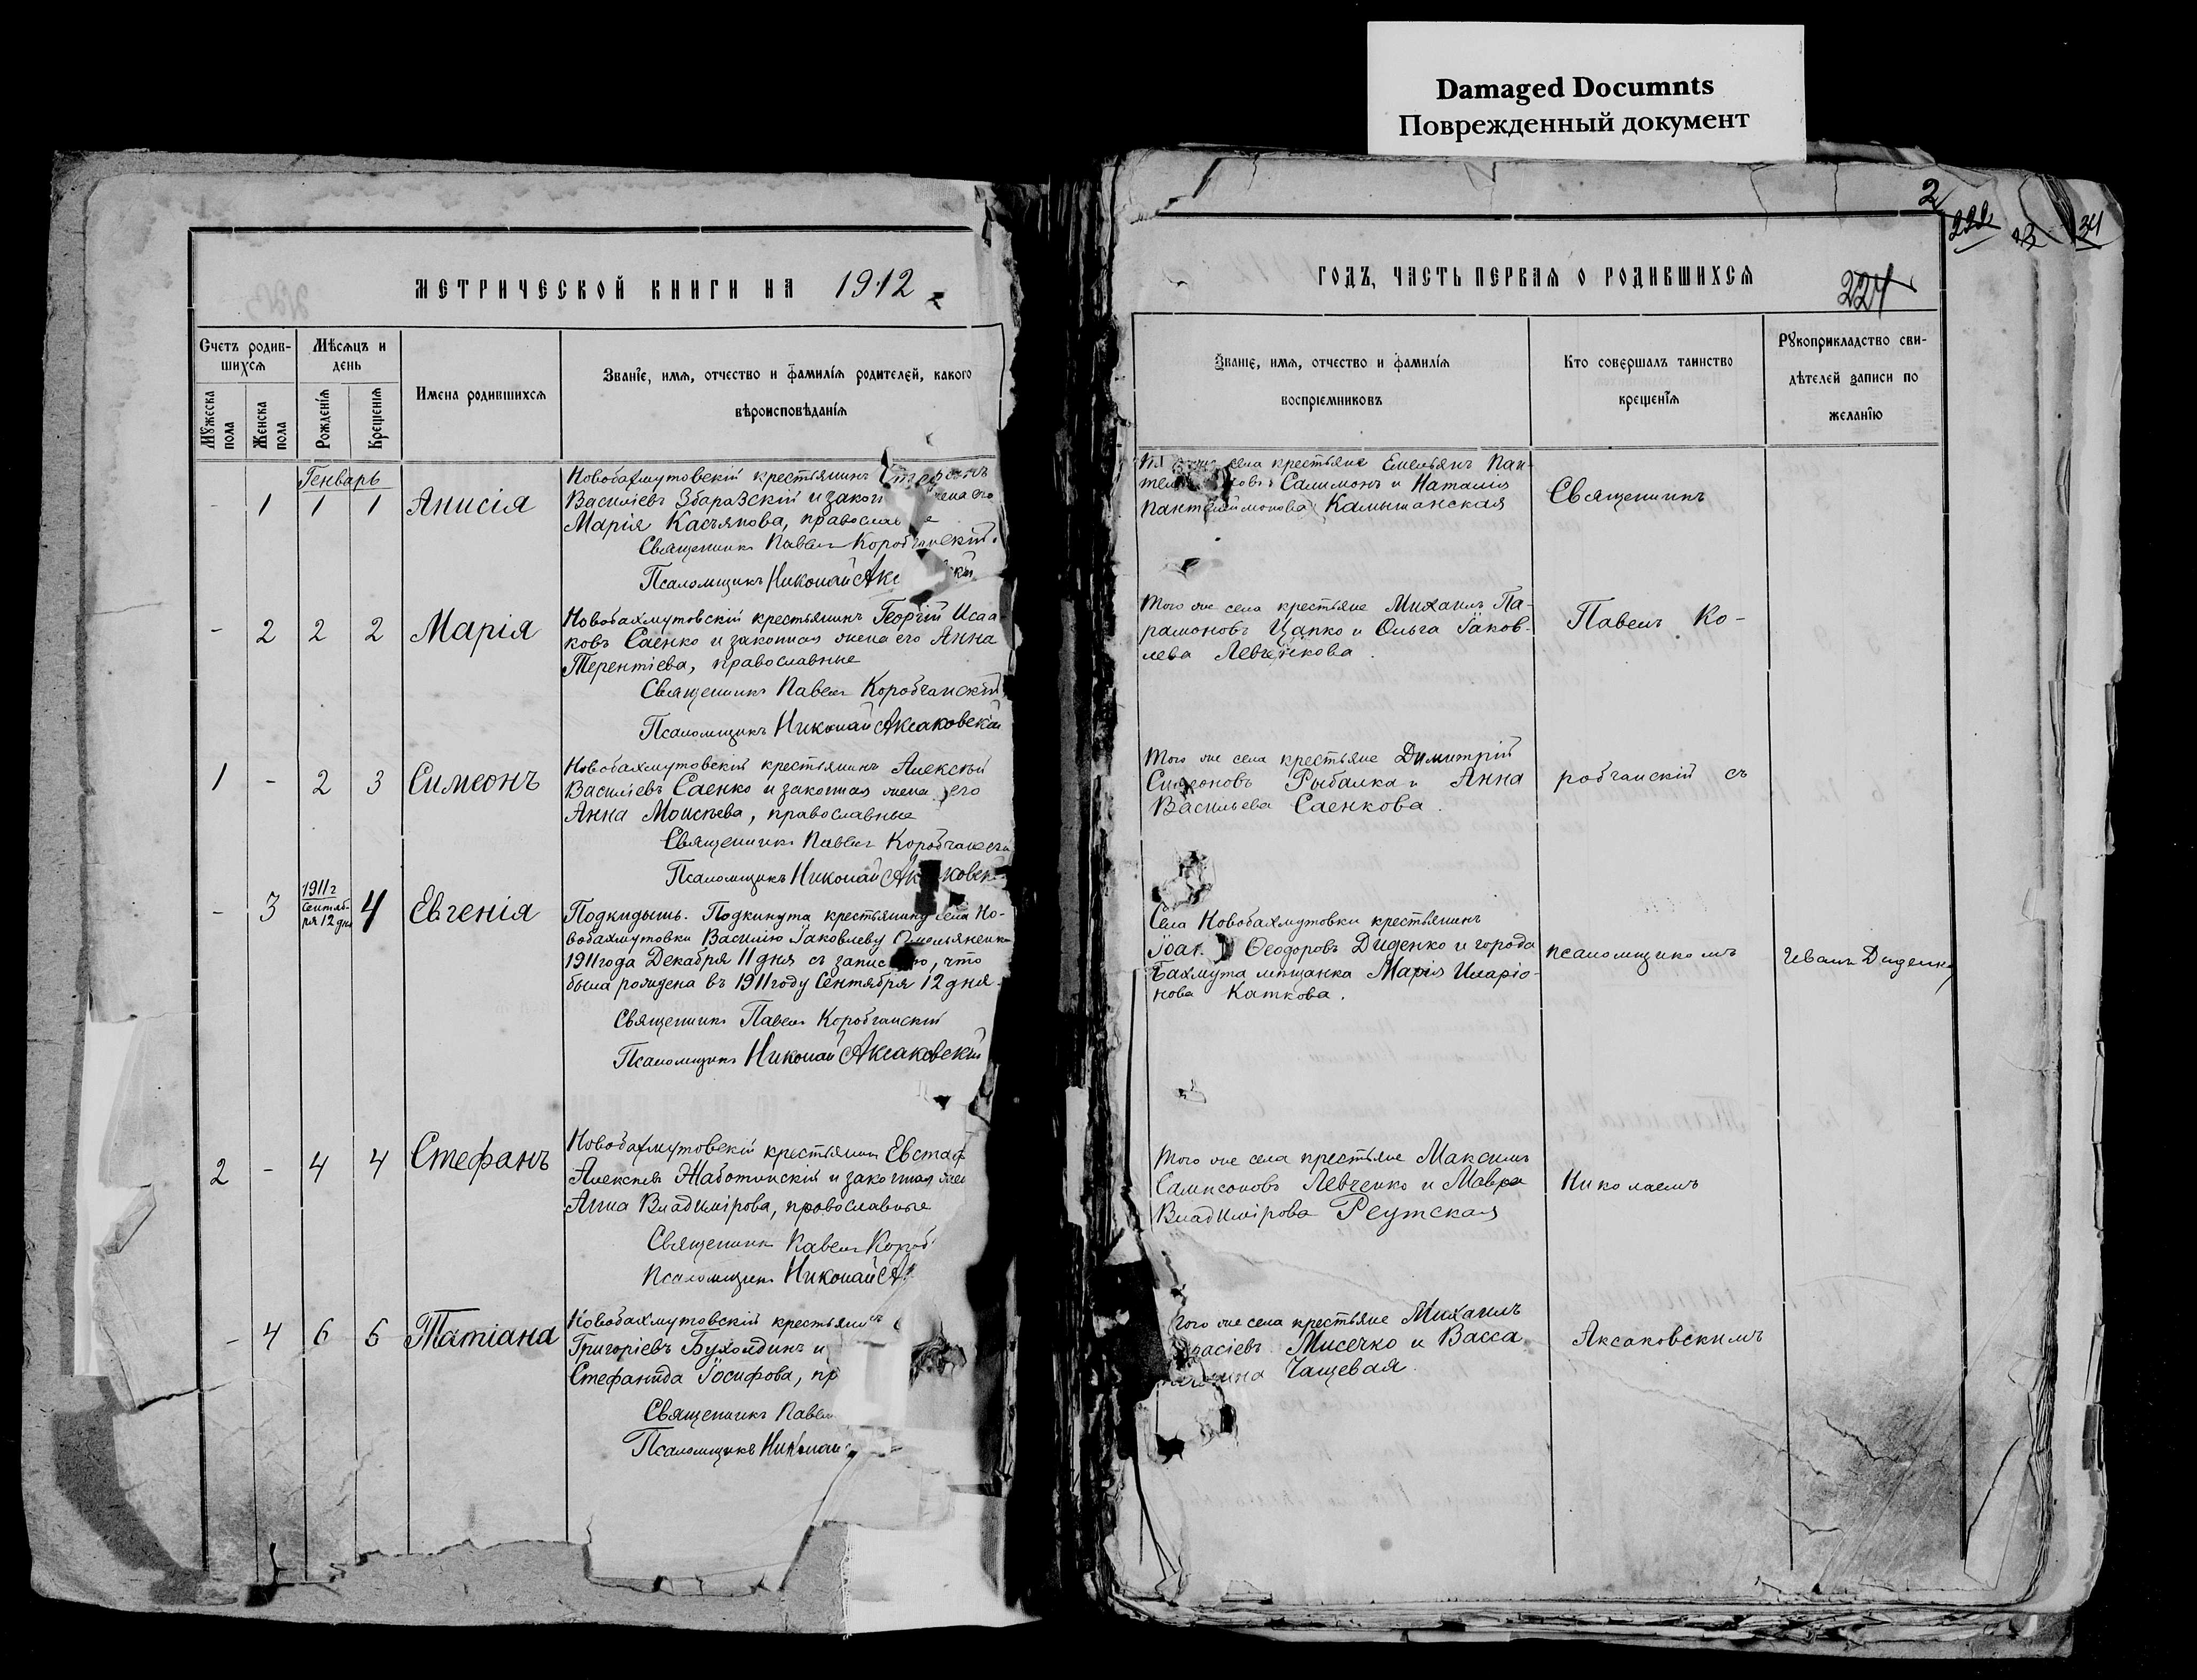 Damaged Documnts
Поврежденный документ
2
222
34
МЕТРИЧЕСКОЙ КНИГИ НА 1912
Счетъ родив-
шихся
Мѣсяцъ и
день
Мужеска
пола
Женска
пола
Рожденія
Крещенія
Имена родившихся
Званіе, имя, отчество и фамилія родителей, какого
вѣроисповѣданія
Генварь
- 1 1 1 Анисія
Новобахмутовскій крестьянинъ
Василіевъ Збаразскій и закон жена его
Марія Касьянова, православ е
Священникъ Павелъ Коробчанскій.
Псаломщикъ Николай Акс
- 2 2 2 Марія
Новобахмутовскій крестьянинъ Георгій Исаа
ковъ Саенко и законная жена его Анна
Терентіева, православные
Священникъ Павелъ Коробчанскій
Псаломщикъ Николай Аксаковскій
1 - 2 3 Симеонъ
Новобахмутовскій крестьянинъ Алексѣй
Василіевъ Саенко и законная жена его
Анна Моисѣева, православные
Священникъ Павелъ Коробчанскі
Псаломщикъ Николай Ак ковск
- 3 1911 г Сентяб-
ря 12 дня 4 Евгенія
Подкидышъ. Подкинута крестьянину села Но-
вобахмутовки Василію Іаковлеву Омельяненк
1911 года Декабря 11 дня съ запис ю, что
была рождена въ 1911 году Сентября 12 дня.
Священникъ Павелъ Коробчанскій
Псаломщикъ Николай Аксаковскій
2 - 4 4 Стефанъ
Новобахмутовскій крестьянинъ Евстаф
Алексѣевъ Жаботинскій и законная жен
Анна Владимірова, православные
Священникъ Павелъ Короб
Псаломщикъ Николай А
- 4 6 6 Татіана
Новобахмутовскій крестьянинъ
Григоріевъ Бухолдинъ и
Стефанида Іосифова, пр
Священникъ Павелъ
Псаломщикъ Николай
ГОДЪ, ЧАСТЬ ПЕРВАЯ О РОДИВШИХСЯ
224
Званіе, имя, отчество и фамилія
воспріемниковъ
Кто совершалъ таинство
крещенія
Рукоприкладство сви-
дѣтелей записи по
желанію
села крестьяне Емельянъ Пан-
тел овъ Салимонъ и Наталія
Пантелеимонова Камышанская
Священникъ
Того же села крестьяне Михаилъ Па-
рамоновъ Цапко и Ольга Іаков-
лева Левченкова.
Павелъ Ко-
Того же села крестьяне Димитрій
Симеоновъ Рыбалка и Анна
Васильева Саенкова.
робчанскій съ
Села Новобахмутовки крестьянинъ
Іоан Ѳеодоровъ Диденко и города
Бахмута мѣщанка Марія Иларіо-
нова Каткова.
псаломщикомъ
Иванъ Диденко
Того же села крестьяне Максимъ
Сампсоновъ Левченко и Мавра
Владимірова Реутская
Николаемъ
Того же села крестьяне Михаилъ
расіевъ Мисечко и Васса
Чащевая.
Аксаковскимъ